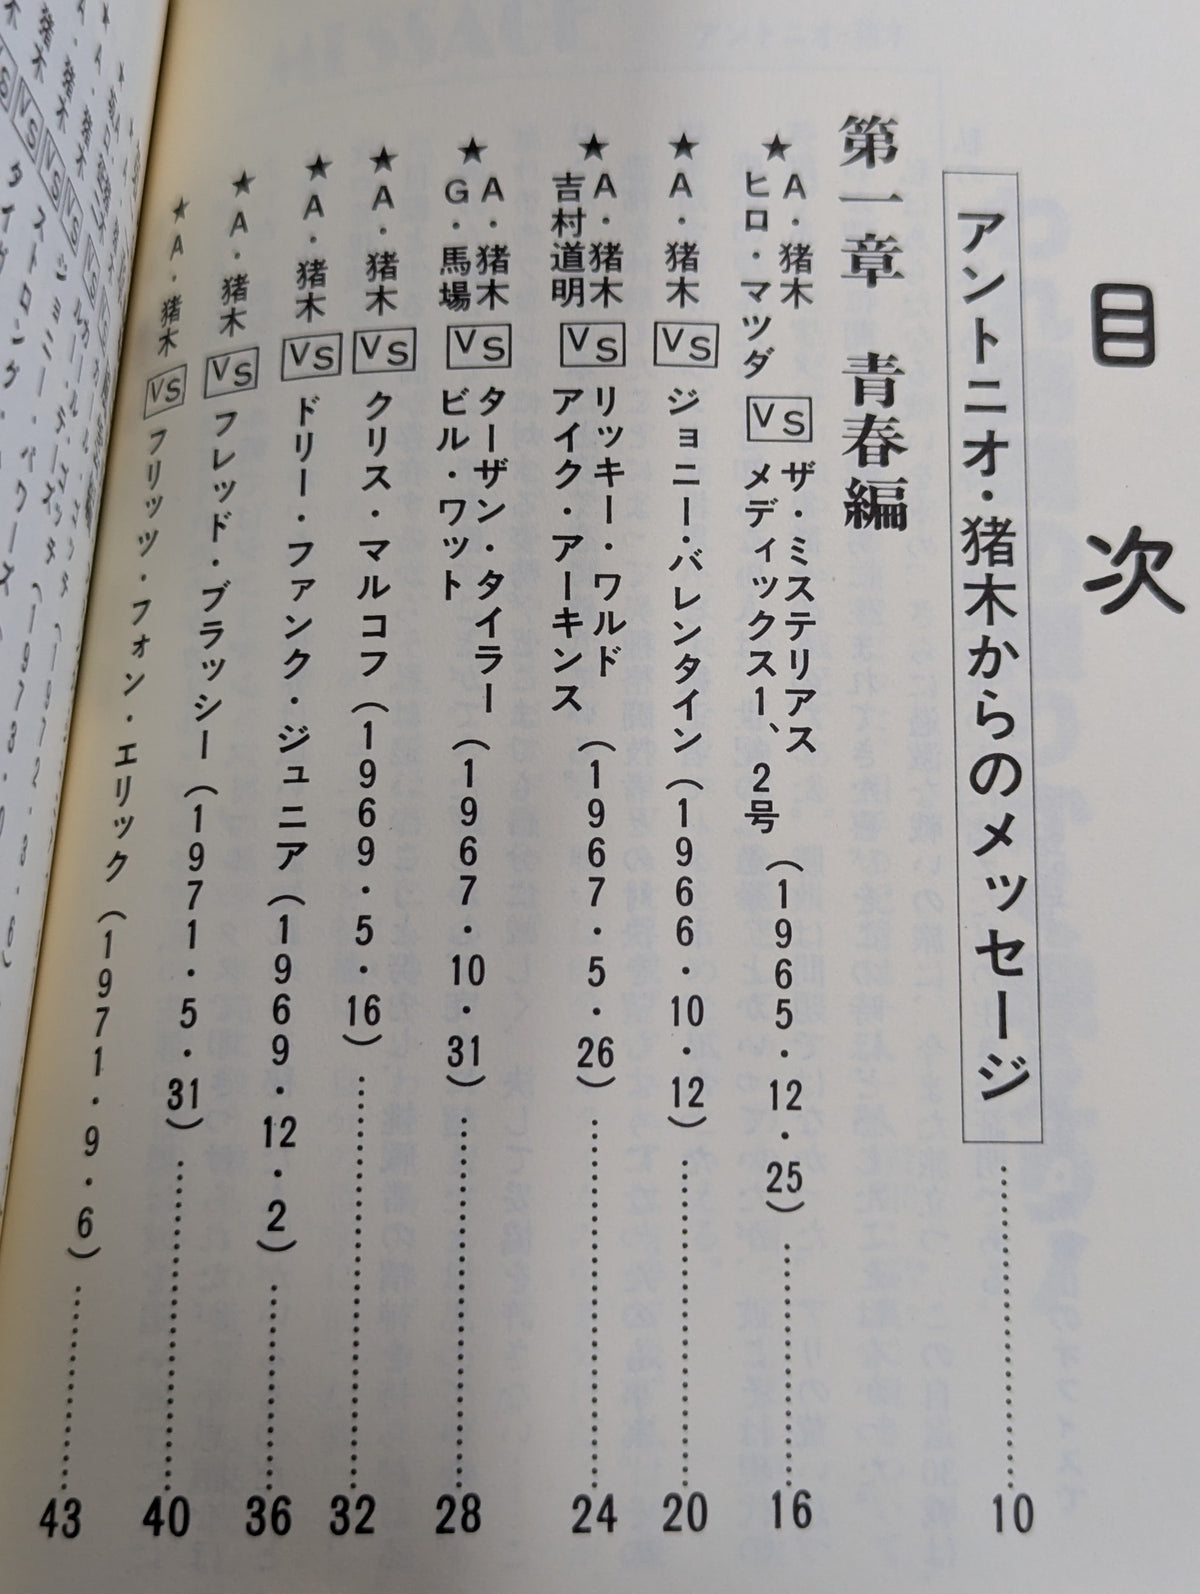 目次
アントニオ・猪木からのメッセージ……10
第一章 青春編
★A・猪木 ヒロ・マツダ VS ザ・ミステリアス メディックス1、2号(1965・12・25)……16
★A・猪木 VS ジョニー・バレンタイン(1966・10・12)……20
★A・猪木 吉村道明 VS リッキー・ワルド アイク・アーキンス(1967・5・26)……24
★A・猪木 G・馬場 VS ターザン・タイラー ビル・ワット(1967・10・31)……28
★A・猪木 VS クリス・マルコフ(1969・5・16)……32
★A・猪木 VS ドリー・ファンク・ジュニア(1969・12・2)……36
★A・猪木 VS フレッド・ブラッシー(1971・5・31)……40
★A・猪木 VS フリッツ・フォン・エリック(1971・9・6)……43